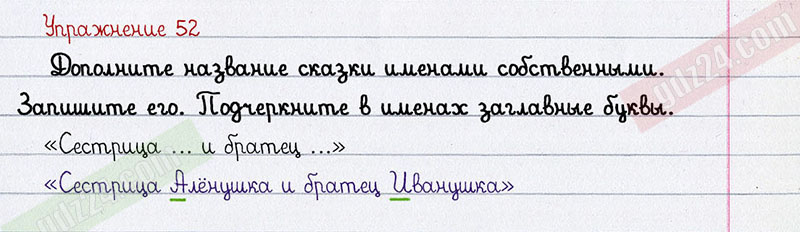 Упражнение 52
Дополните название сказки именами собственными.
Запишите его. Подчеркните в именах заглавные буквы.
«Сестрица ... и братец ...»
«Сестрица Алёнушка и братец Иванушка»
gdz24.com
gdz24.com